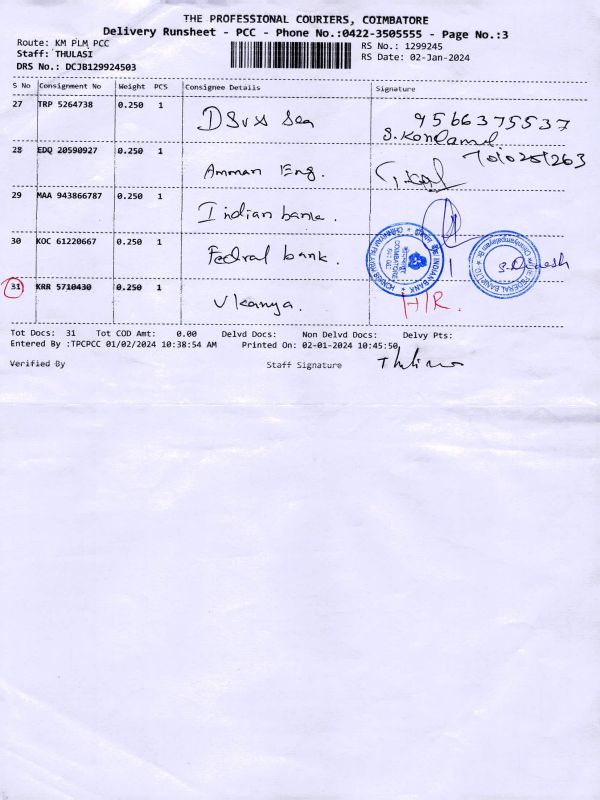 THE PROFESSIONAL COURIERS, COIMBATORE
Delivery Runsheet - PCC - Phone No.:0422-3505555 - Page No.:3
Route: KM PLM PCC
RS No.: 1299245
Staff: THULASI
RS Date: 02-Jan-2024
DRS No.: DCJB129924503
S No Consignment No Weight PCS Consignee Details Signature
27 TRP 5264738 0.250 1
9566375537
28 EDQ 20590927 0.250 1 Amman Eng.
29 MAA 943866787 0.250 1 Indian bank.
30 KOC 61220667 0.250 1 Fedral bank.
INDIAN BANK
COIMBATORE
31 KRR 5710430 0.250 1 Vkanya. H/R.
Tot Docs: 31 Tot COD Amt: 0.00 Delvd Docs: Non Delvd Docs: Delvy Pts:
Entered By :TPCPCC 01/02/2024 10:38:54 AM Printed On: 02-01-2024 10:45:50
Verified By Staff Signature